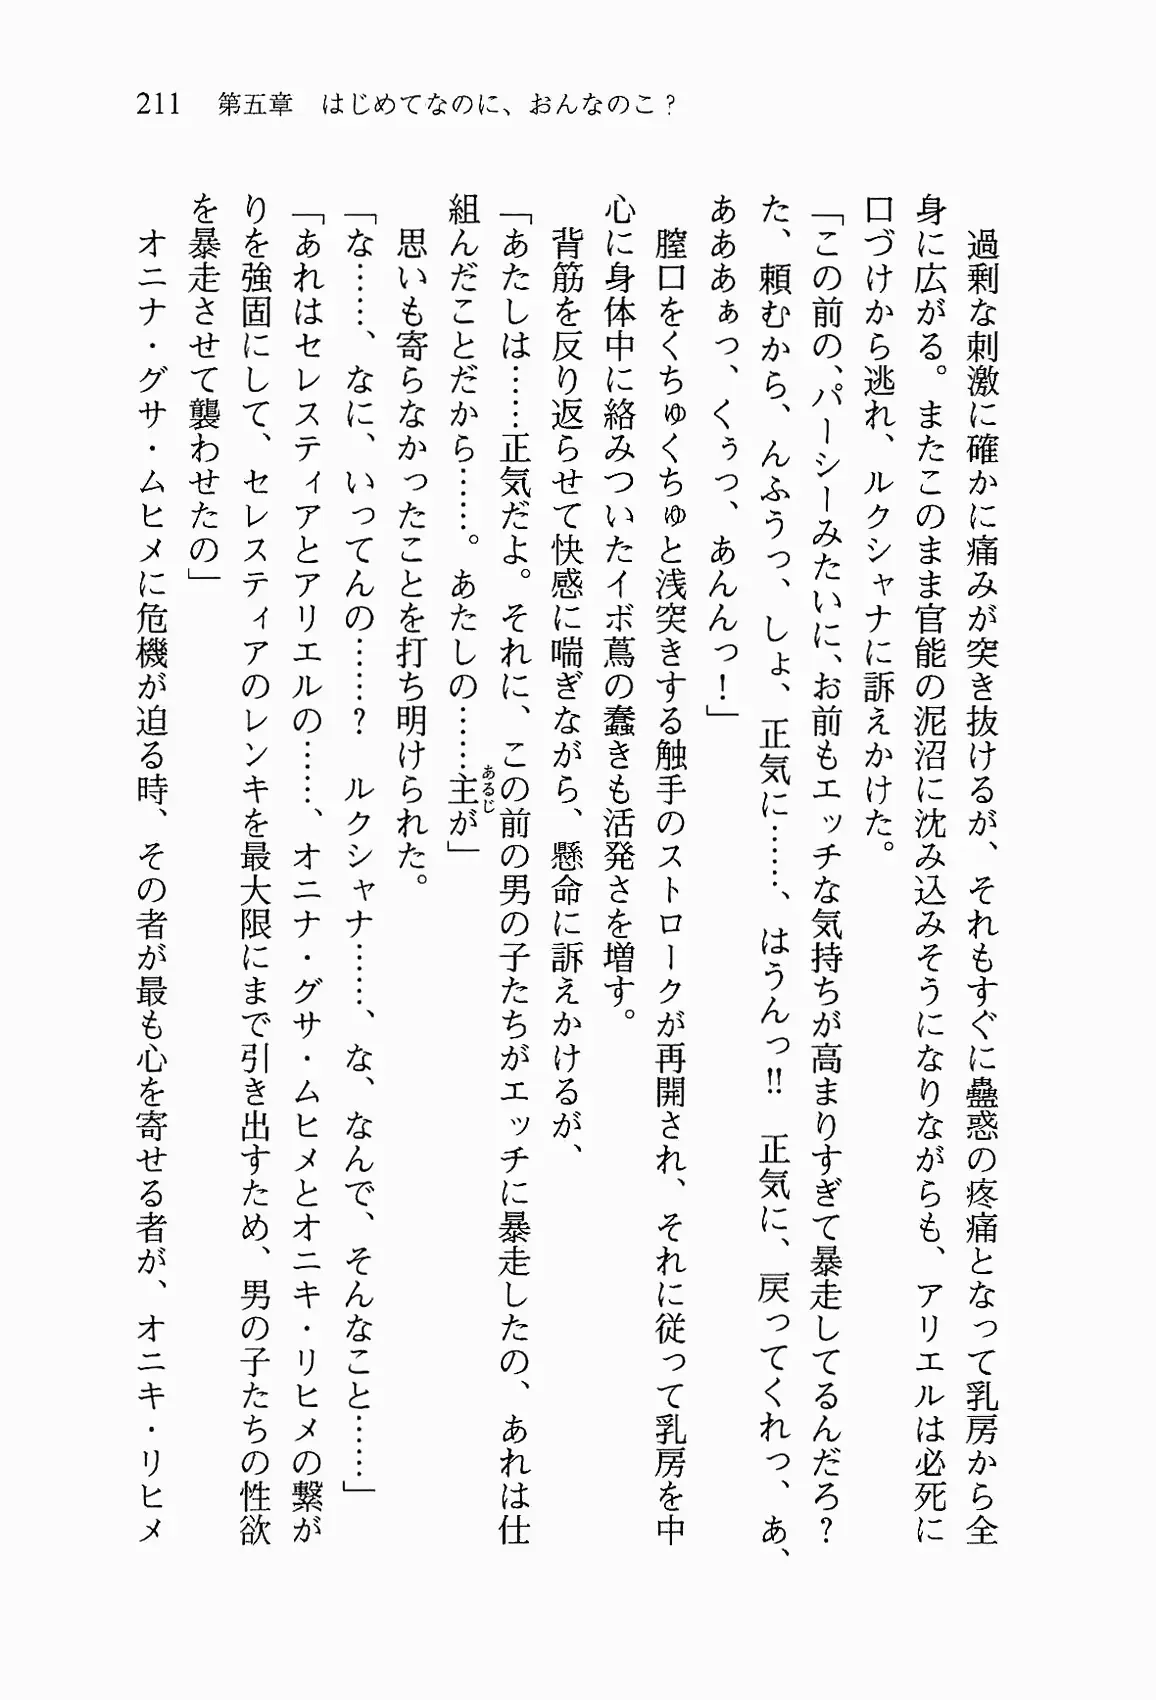 211　第五章　はじめてなのに、おんなのこ？
　過剰な刺激に確かに痛みが突き抜けるが、それもすぐに蠱惑の疼痛となって乳房から全
身に広がる。またこのまま官能の泥沼に沈み込みそうになりながらも、アリエルは必死に
口づけから逃れ、ルクシャナに訴えかけた。
「この前の、パーシーみたいに、お前もエッチな気持ちが高まりすぎて暴走してるんだろ？
た、頼むから、んふうっ、しょ、正気に……、はうんっ!!　正気に、戻ってくれっ、あ、
あああぁっ、くぅっ、あんんっ！」
　膣口をくちゅくちゅと浅突きする触手のストロークが再開され、それに従って乳房を中
心に身体中に絡みついたイボ蔦の蠢きも活発さを増す。
　背筋を反り返らせて快感に喘ぎながら、懸命に訴えかけるが、
「あたしは……正気だよ。それに、この前の男の子たちがエッチに暴走したの、あれは仕
組んだことだから……。あたしの……主が」
あるじ
　思いも寄らなかったことを打ち明けられた。
「な……、なに、いってんの……？　ルクシャナ……、な、なんで、そんなこと……」
「あれはセレスティアとアリエルの……、オニナ・グサ・ムヒメとオニキ・リヒメの繋が
りを強固にして、セレスティアのレンキを最大限にまで引き出すため、男の子たちの性欲
を暴走させて襲わせたの」
　オニナ・グサ・ムヒメに危機が迫る時、その者が最も心を寄せる者が、オニキ・リヒメ